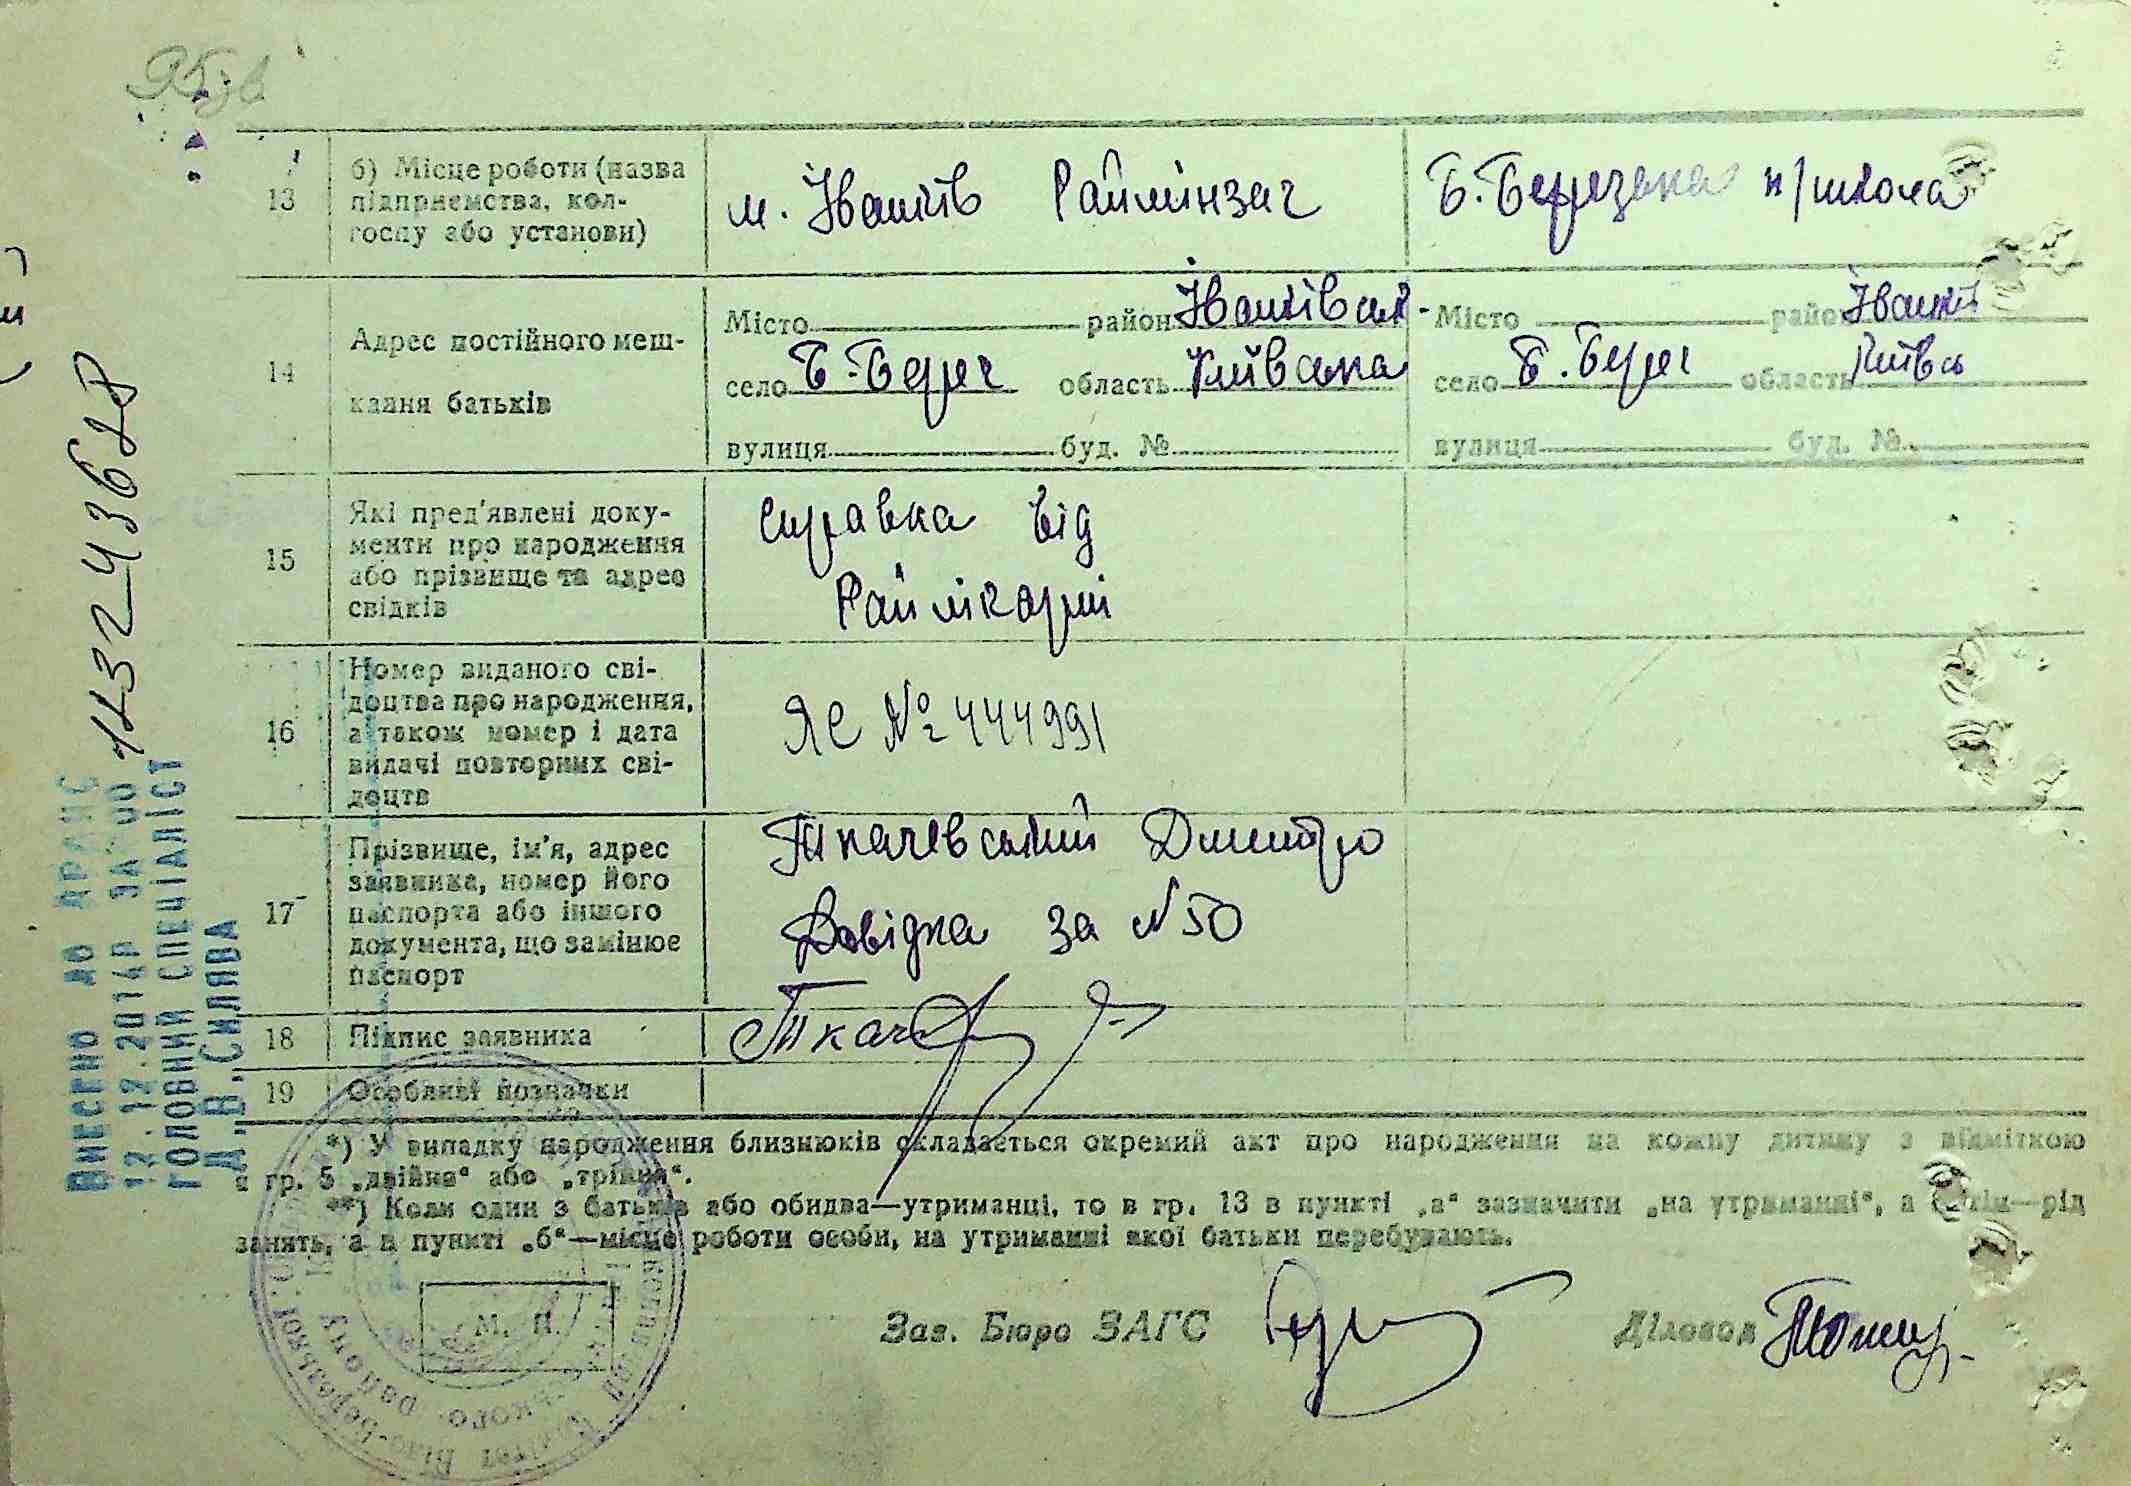 13
б) Місце роботи (назва
підприємства, кол-
госпу або установи)
м. Іванків Раймінзаг
Б. Березська н/школа
14
Адрес постійного меш-
кання батьків
Місто район Іванківськ-
село Б-Берег область Київська
вулиця буд. №
Місто район Іванкі
село Б. Берег область Київсь
вулиця буд. №
15
Які пред'явлені доку-
менти про народження
або прізвище та адрес
свідків
справка від
Райлікарні
16
Номер виданого сві-
доцтва про народження,
а також номер і дата
видачі повторних сві-
доцтв
ЯС № 444991
17
Прізвище, ім'я, адрес
заявника, номер його
паспорта або іншого
документа, що замінює
паспорт
Ткачевський Дмитро
Довідка за №50
18
Підпис заявника
Ткач
19
Особливі позначки
*) У випадку народження близнюків складається окремий акт про народження на кожну дитину з відміткою
в гр. 5 „двійня“ або „трійня“.
**) Коли один з батьків або обидва—утриманці, то в гр. 13 в пункті „а“ зазначити „на утриманні“, а потім—рід
занять, а в пункті „б“—місце роботи особи, на утриманні якої батьки перебувають.
М. П.
Зав. Бюро ЗАГС
Діловод
ВНЕСЕНО ДО ДРАЦС
12.12.2014Р ЗА №00 113243628
ГОЛОВНИЙ СПЕЦІАЛІСТ
Д.В.СИЛЯВА